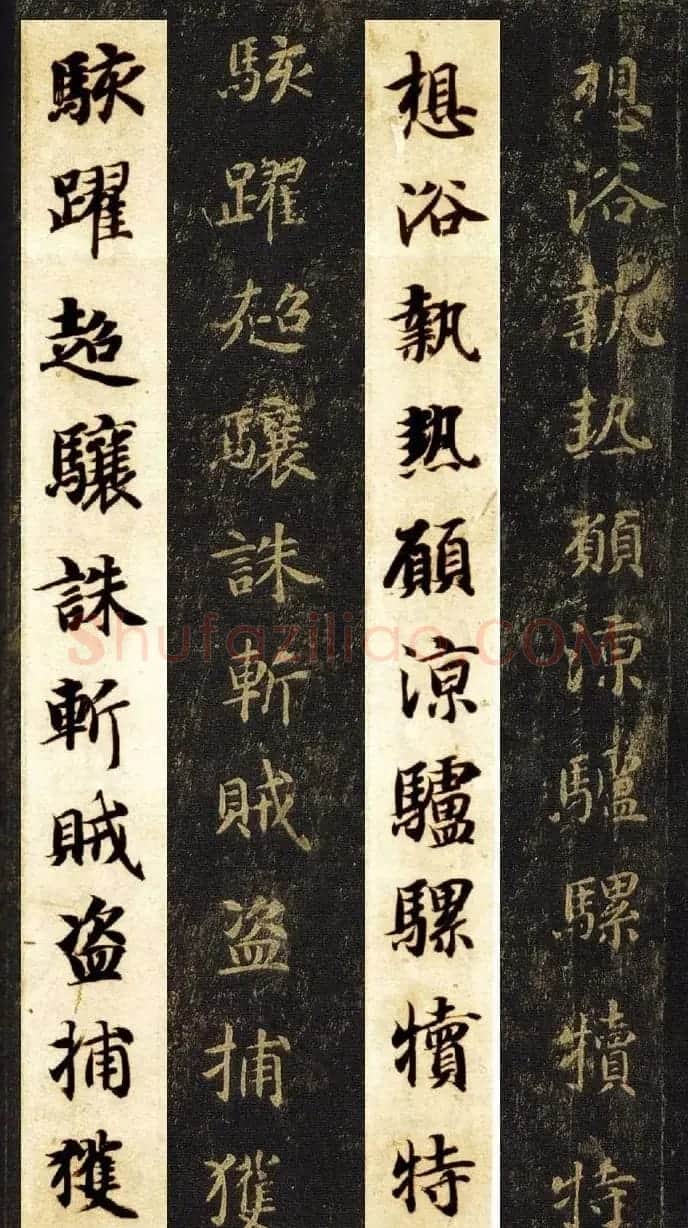 想浴執熱願涼驢騾犢特
想浴執熱願涼驢騾犢特
駭躍超驤誅斬賊盗捕獲
駭躍超驤誅斬賊盗捕獲
Shufaziliao.COM